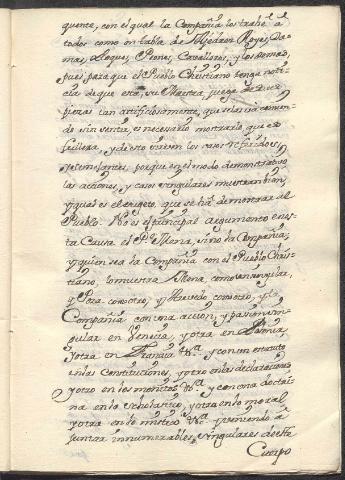 quente, con el qual la Compañia los trahe à
todos como en tabla de Algedrez Reyes, Da-
mas, Roques, Peones, Cavalleros, y los demas,
pues para que el Pueblo Christiano tenga noti-
cia de que esta, su Maestra, juega sus
piezas tan artificiosamente, que se las va comien-
do sin sentir, es necesario mostrarle que es
fullera, y de esto sirven los casos referidos,
y semejantes, porque en el modo demonstrativo
las acciones, y casos singulares muestran bien,
y qual es el sugeto, que se ha de mostrar al
Pueblo. No es el principal argumento en es-
ta Causa el P. Mena, sino la Compañia;
y quien sea la Compañia con el Pueblo Chris-
tiano, lo muestra Mena, como un singular,
y Poza como otro, y Azevedo como otro, y la
Compañia con una accion, y passion sin-
gular en Venecia, y otra en
y otra en Francia &a. y con un estatuto
en las Constituciones, y otro en las declaraciones
y otro en los monitos &a. y con una doctri-
na en lo scholastico, y otra en lo moral
y otra en lo mistico &a. y poniendo à
juntar innumerables singulares de este
Cuerpo